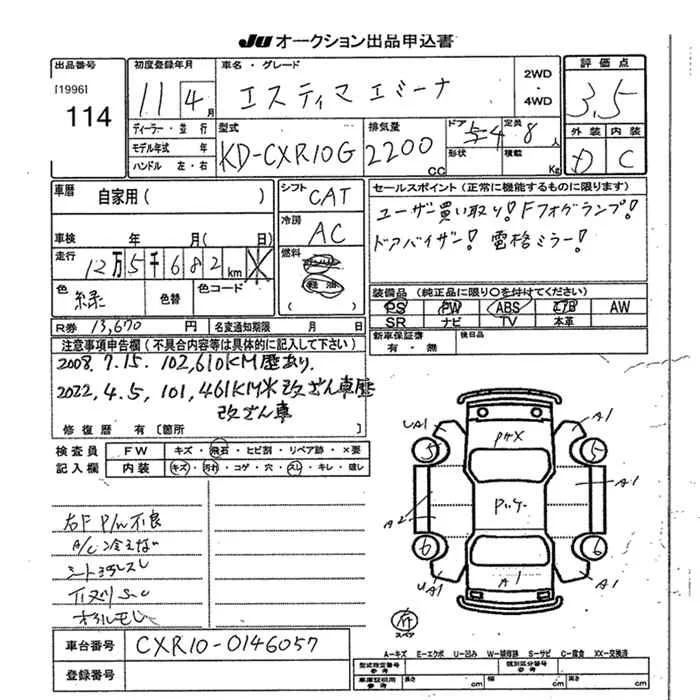 Ju オークション出品申込書
出品番号
[1996]
114
初度登録年月
11 4月
ディーラー・並行
モデル年式 年
ハンドル 左・右
車名・グレード
エスティマエミーナ
2WD
・
4WD
型式
KD-CXR10G
排気量
2200
CC
ドア 5 4
形状
定員 8人
積載 Kg
評価点
3.5
外装 内装
D C
車歴
自家用( )
車検 年 月( 日)
走行
12万5千682km
色
緑
色替
色コード
( )
シフト
CAT
冷房
AC
燃料
軽油
セールスポイント(正常に機能するものに限ります)
ユーザー買い取り! Fフォグランプ!
ドアバイザー! 電格ミラー!
装備品(純正品に限り○を付けてください)
PS PW ABS エアB AW
SR ナビ TV 本革
新車保証書
有・無
後日品
R券 13,670円
名変通知期限 月 日
注意事項申告欄(不具合内容等は具体的に記入して下さい)
2008.7.15. 102,610KM歴あり.
2022.4.5, 101,461KM※改ざん車歴
改ざん車
修復歴 有〔箇所 〕
検査員
記入欄
FW キズ・飛石・ヒビ割・リペア跡・×要
内装 キズ・汚れ・コゲ・穴・スレ・キレ・破し
右F P/W不良
A/C冷えない
シート汚れスレ
オイルモレ
UA1
A1
5
5
A2
A1
6
6
UA1
A1
A1
スペア
車台番号
CXR10-0146057
登録番号
A−キズ E−エクボ U−凹み W−補修跡 S−サビ C−腐食 XX−交換済
型式指定番号
参考
類別区分番号
参考
車庫証明用
参考
長さ cm
幅 cm
高さ cm